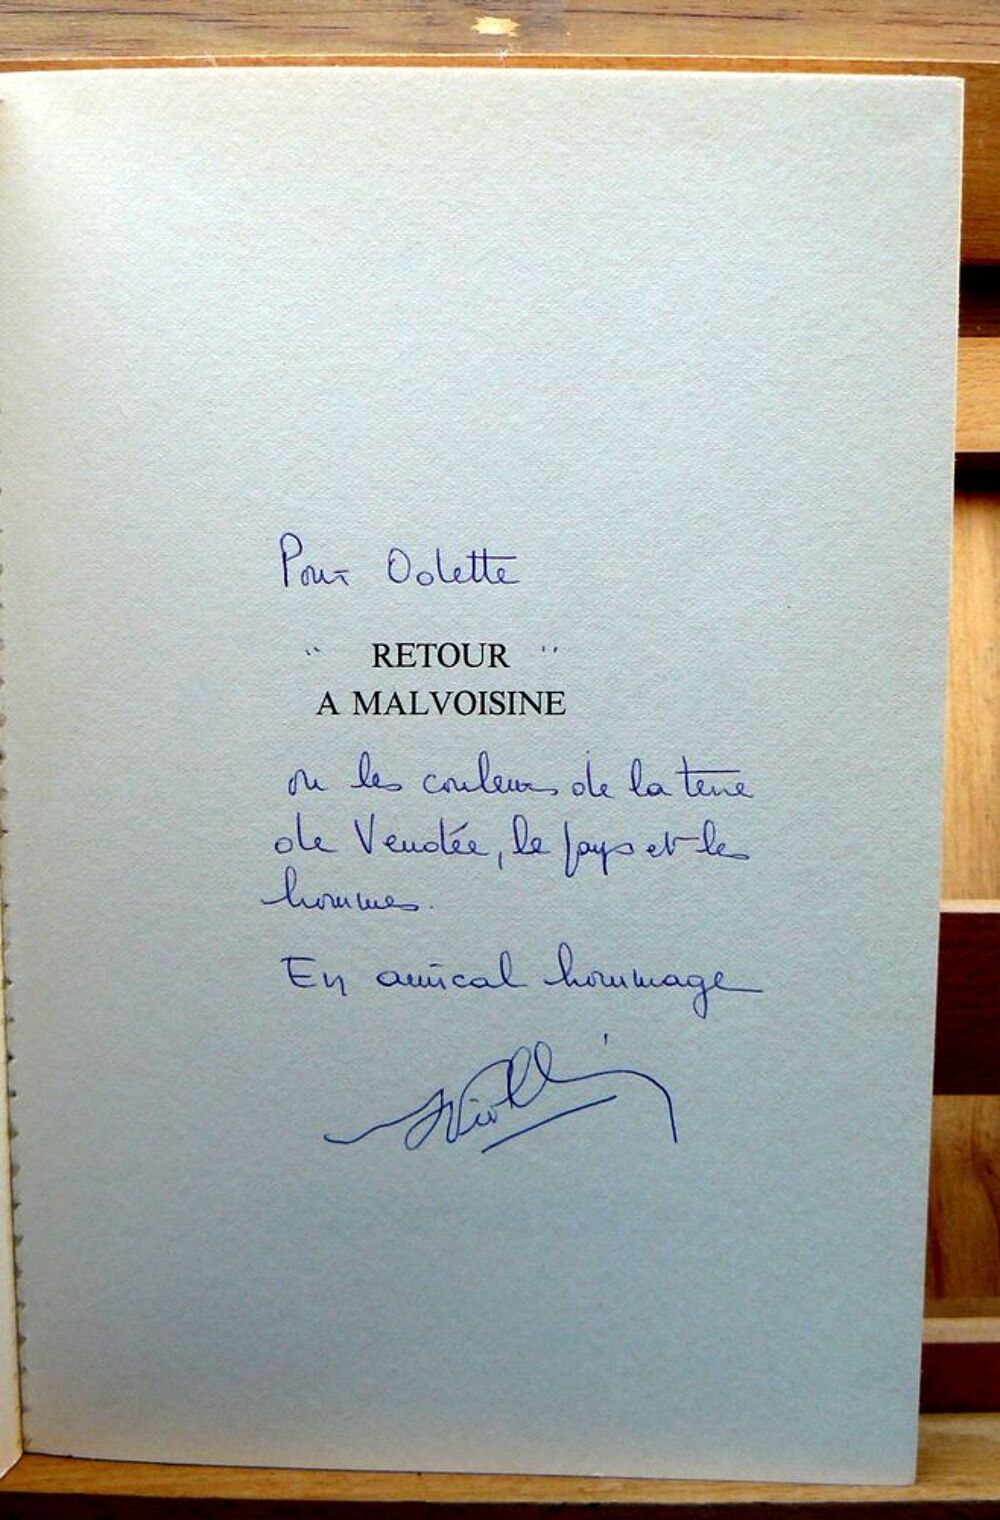 Pour Odette
" RETOUR "
A MALVOISINE
ou les couleurs de la terre
de Vendée, le pays et les
hommes.
En amical hommage